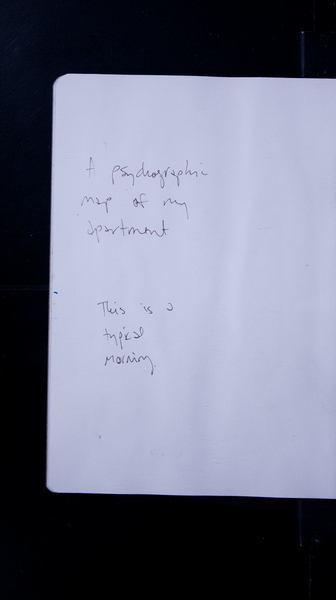 A psychographic
map of my
apartment
This is a
typical
morning.